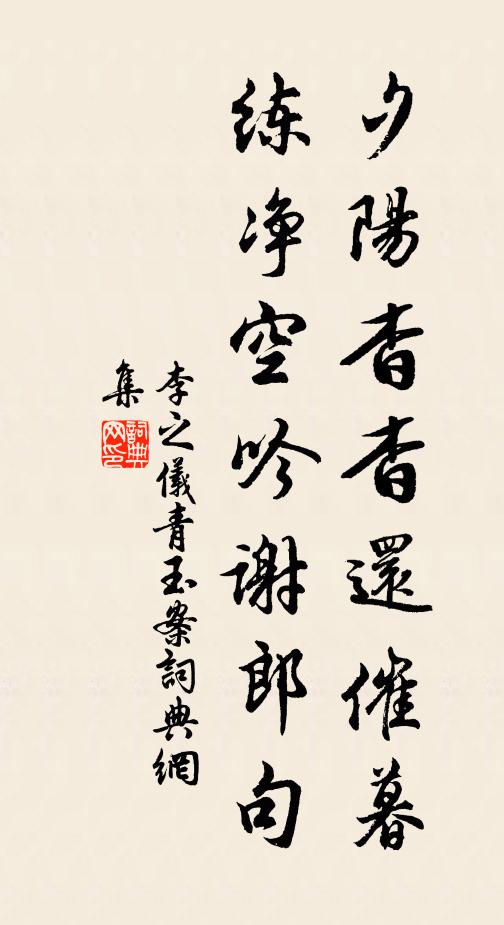 夕陽杳杳還催暮
練净空吟謝郎句
李之儀青玉案詞典網
集
詞典网印